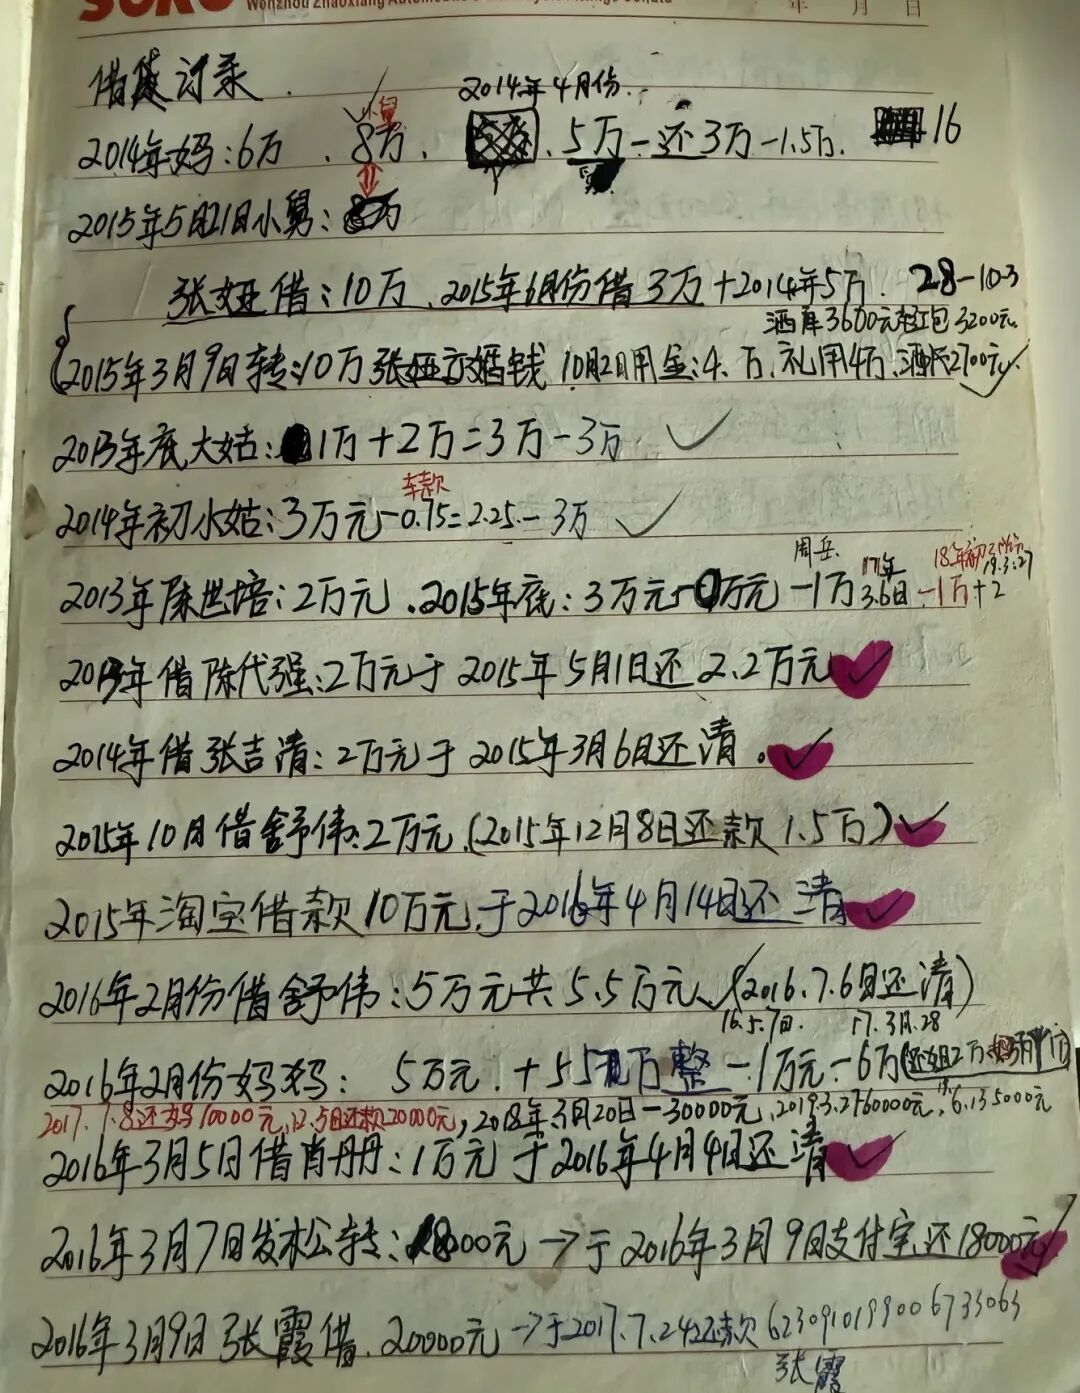 年 月 日
借贷讨录.
2014年4月份.
小舅
2014年妈:6万 . 8万. 5万-还3万-1.5万. 16
2015年5月21日小舅:
张娅借:10万.2015年6月份借3万+2014年5万. 28-10-3
酒席3600元 红包3200元
2015年3月9日转:10万张娅 婚钱 10月2日用金:4.万.礼用4万.酒 2700元
2013年底大姑:1万+2万=3万-3万
车款
2014年初小姑:3万元-0.75=2.25-3万
周岳. 17年 18年初 19.3.27
2013年陈世培:2万元.2015年底:3万元- 万元-1万 3.6日 -1万+2
2013年借陈代强:2万元于2015年5月1日还2.2万元
2014年借张吉清:2万元于2015年3月6日还清.
2015年10月借舒伟:2万元.(2015年12月8日还款1.5万)
2015年淘宝借款10万元.于2016年4月14日还清
2016年2月份借舒伟:5万元共5.5万元.(2016.7.6日还清)
16.5.7日. 17.3月.28
2016年2月份妈妈: 5万元.+5 万整-1万元-6万(还姐2万
2017.7.8还妈10000元,12.5日还款20000元,2018年3月20日-30000元,2019.3.27 60000元, 6.13 5000元
2016年3月5日借肖丹丹:1万元于2016年4月4日还清
2016年3月7日发松转:18000元→于2016年3月9日支付宝还18000元
2016年3月9日张霞借.20000元→于2017.7.24还款6230910199006733063
张霞